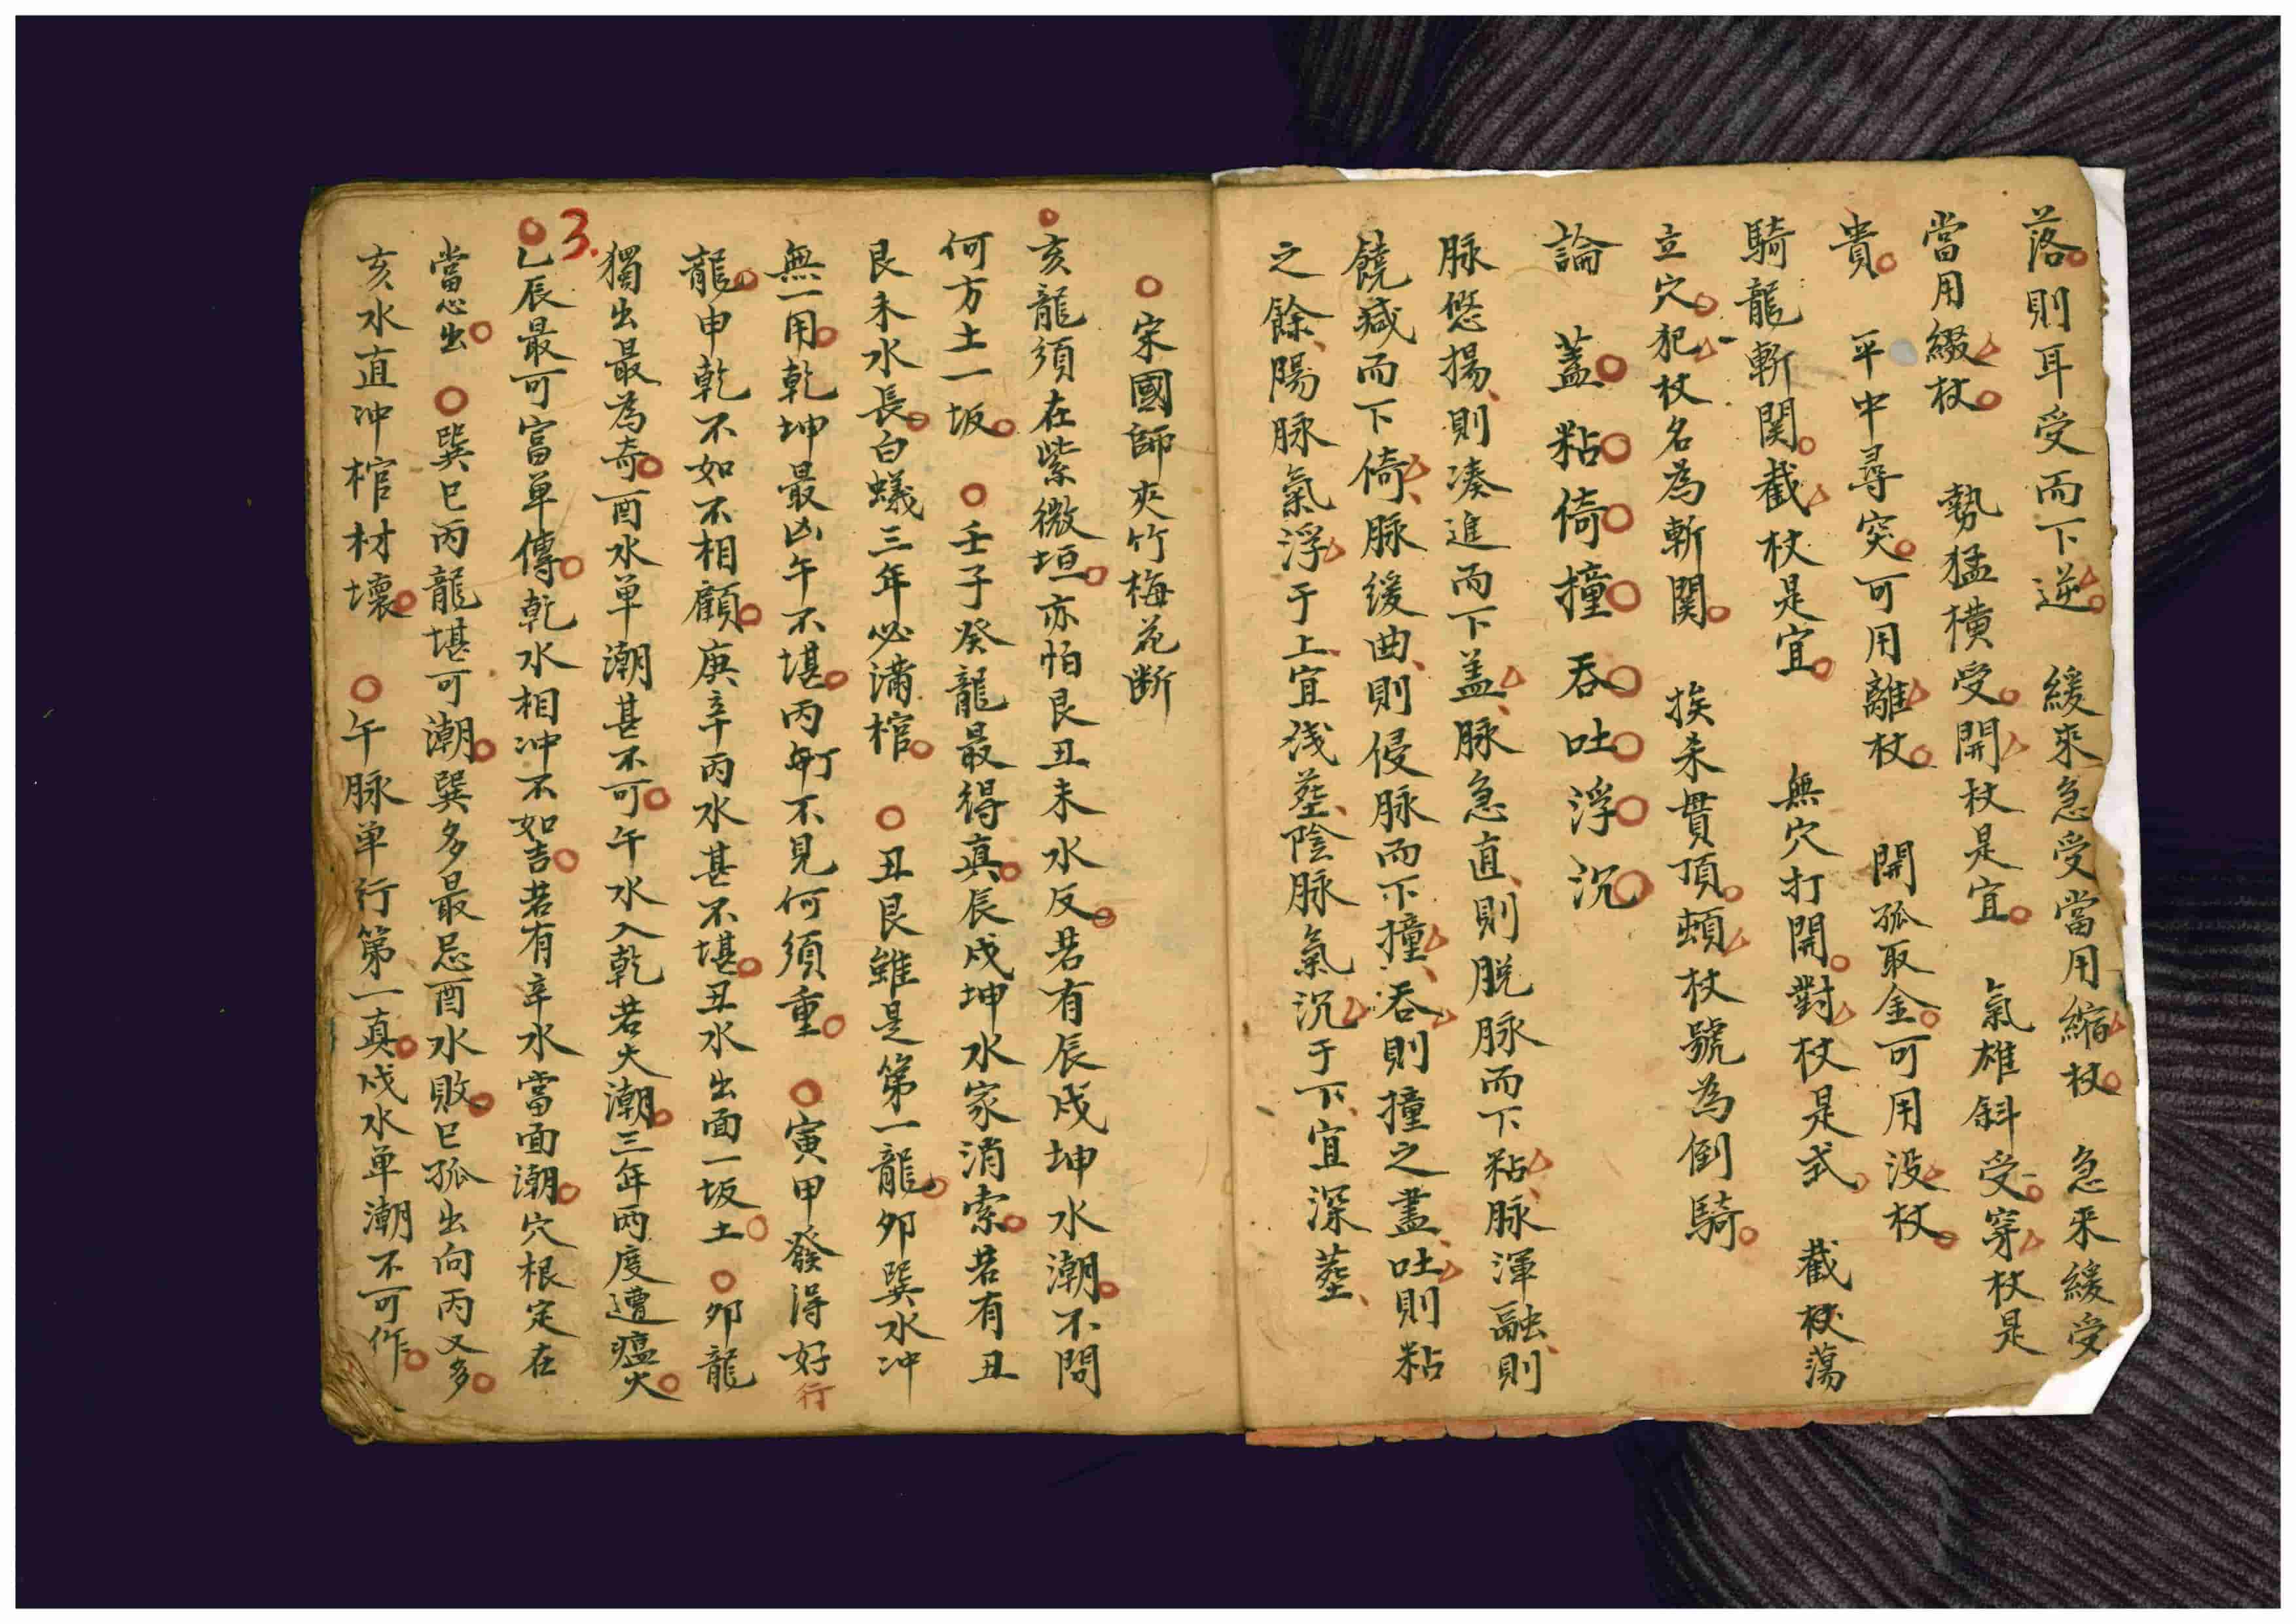 落則耳受而下逆　緩來急受當用縮杖　急來緩受
當用綴杖　勢猛橫受開杖是宜　氣雄斜受穿杖是
貴　平中尋突可用離杖　開孤取金可用没杖
騎龍斬関截杖是宜　無穴打開對杖是式　截杖蕩
立穴犯杖名為斬関　挨未貫頂頓杖號為倒騎
論　蓋粘倚撞吞吐浮沉
脉悠揚則凑進而下盖脉急直則脱脉而下粘脉渾融則
饒减而下倚脉緩曲則侵脉而下撞吞則撞之盡吐則粘
之餘陽脉氣浮于上宜浅塟陰脉氣沉于下宜深塟
宋國師夾竹梅花断
亥龍須在紫微垣亦怕艮丑未水反若有辰戌坤水潮不問
何方土一坂　壬子癸龍最得真辰戌坤水家消索若有丑
艮未水長白蟻三年必满棺　丑艮雖是第一龍夘巽水冲
無一用乾坤最凶午不堪丙町不見何須重　寅甲發得好行
龍申乾不如不相顧庚辛丙水甚不堪丑水出面一坂土　夘龍
獨出最為奇酉水单潮甚不可午水入乾若大潮三年两度遭瘟火
3.
乙辰最可富单傳乾水相冲不如吉若有辛水當面潮穴根定在
當心出　巽巳丙龍堪可潮巽多最忌酉水敗巳孤出向丙又多
亥水直冲棺材壞　午脉单行第一真戌水单潮不可作